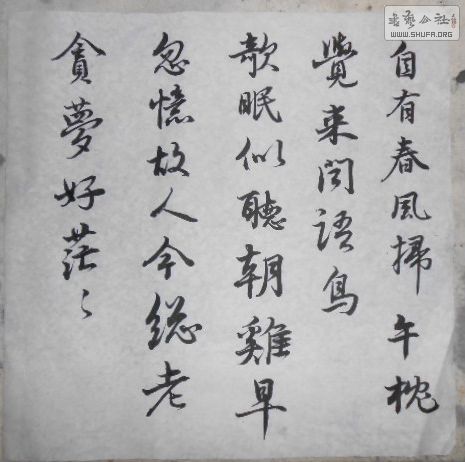 自有春風掃午枕
覺来闻語鳥
欹眠似聽朝雞早
忽憶故人今総老
貪夢好茫〻
書藝公社
WWW.SHUFA.ORG